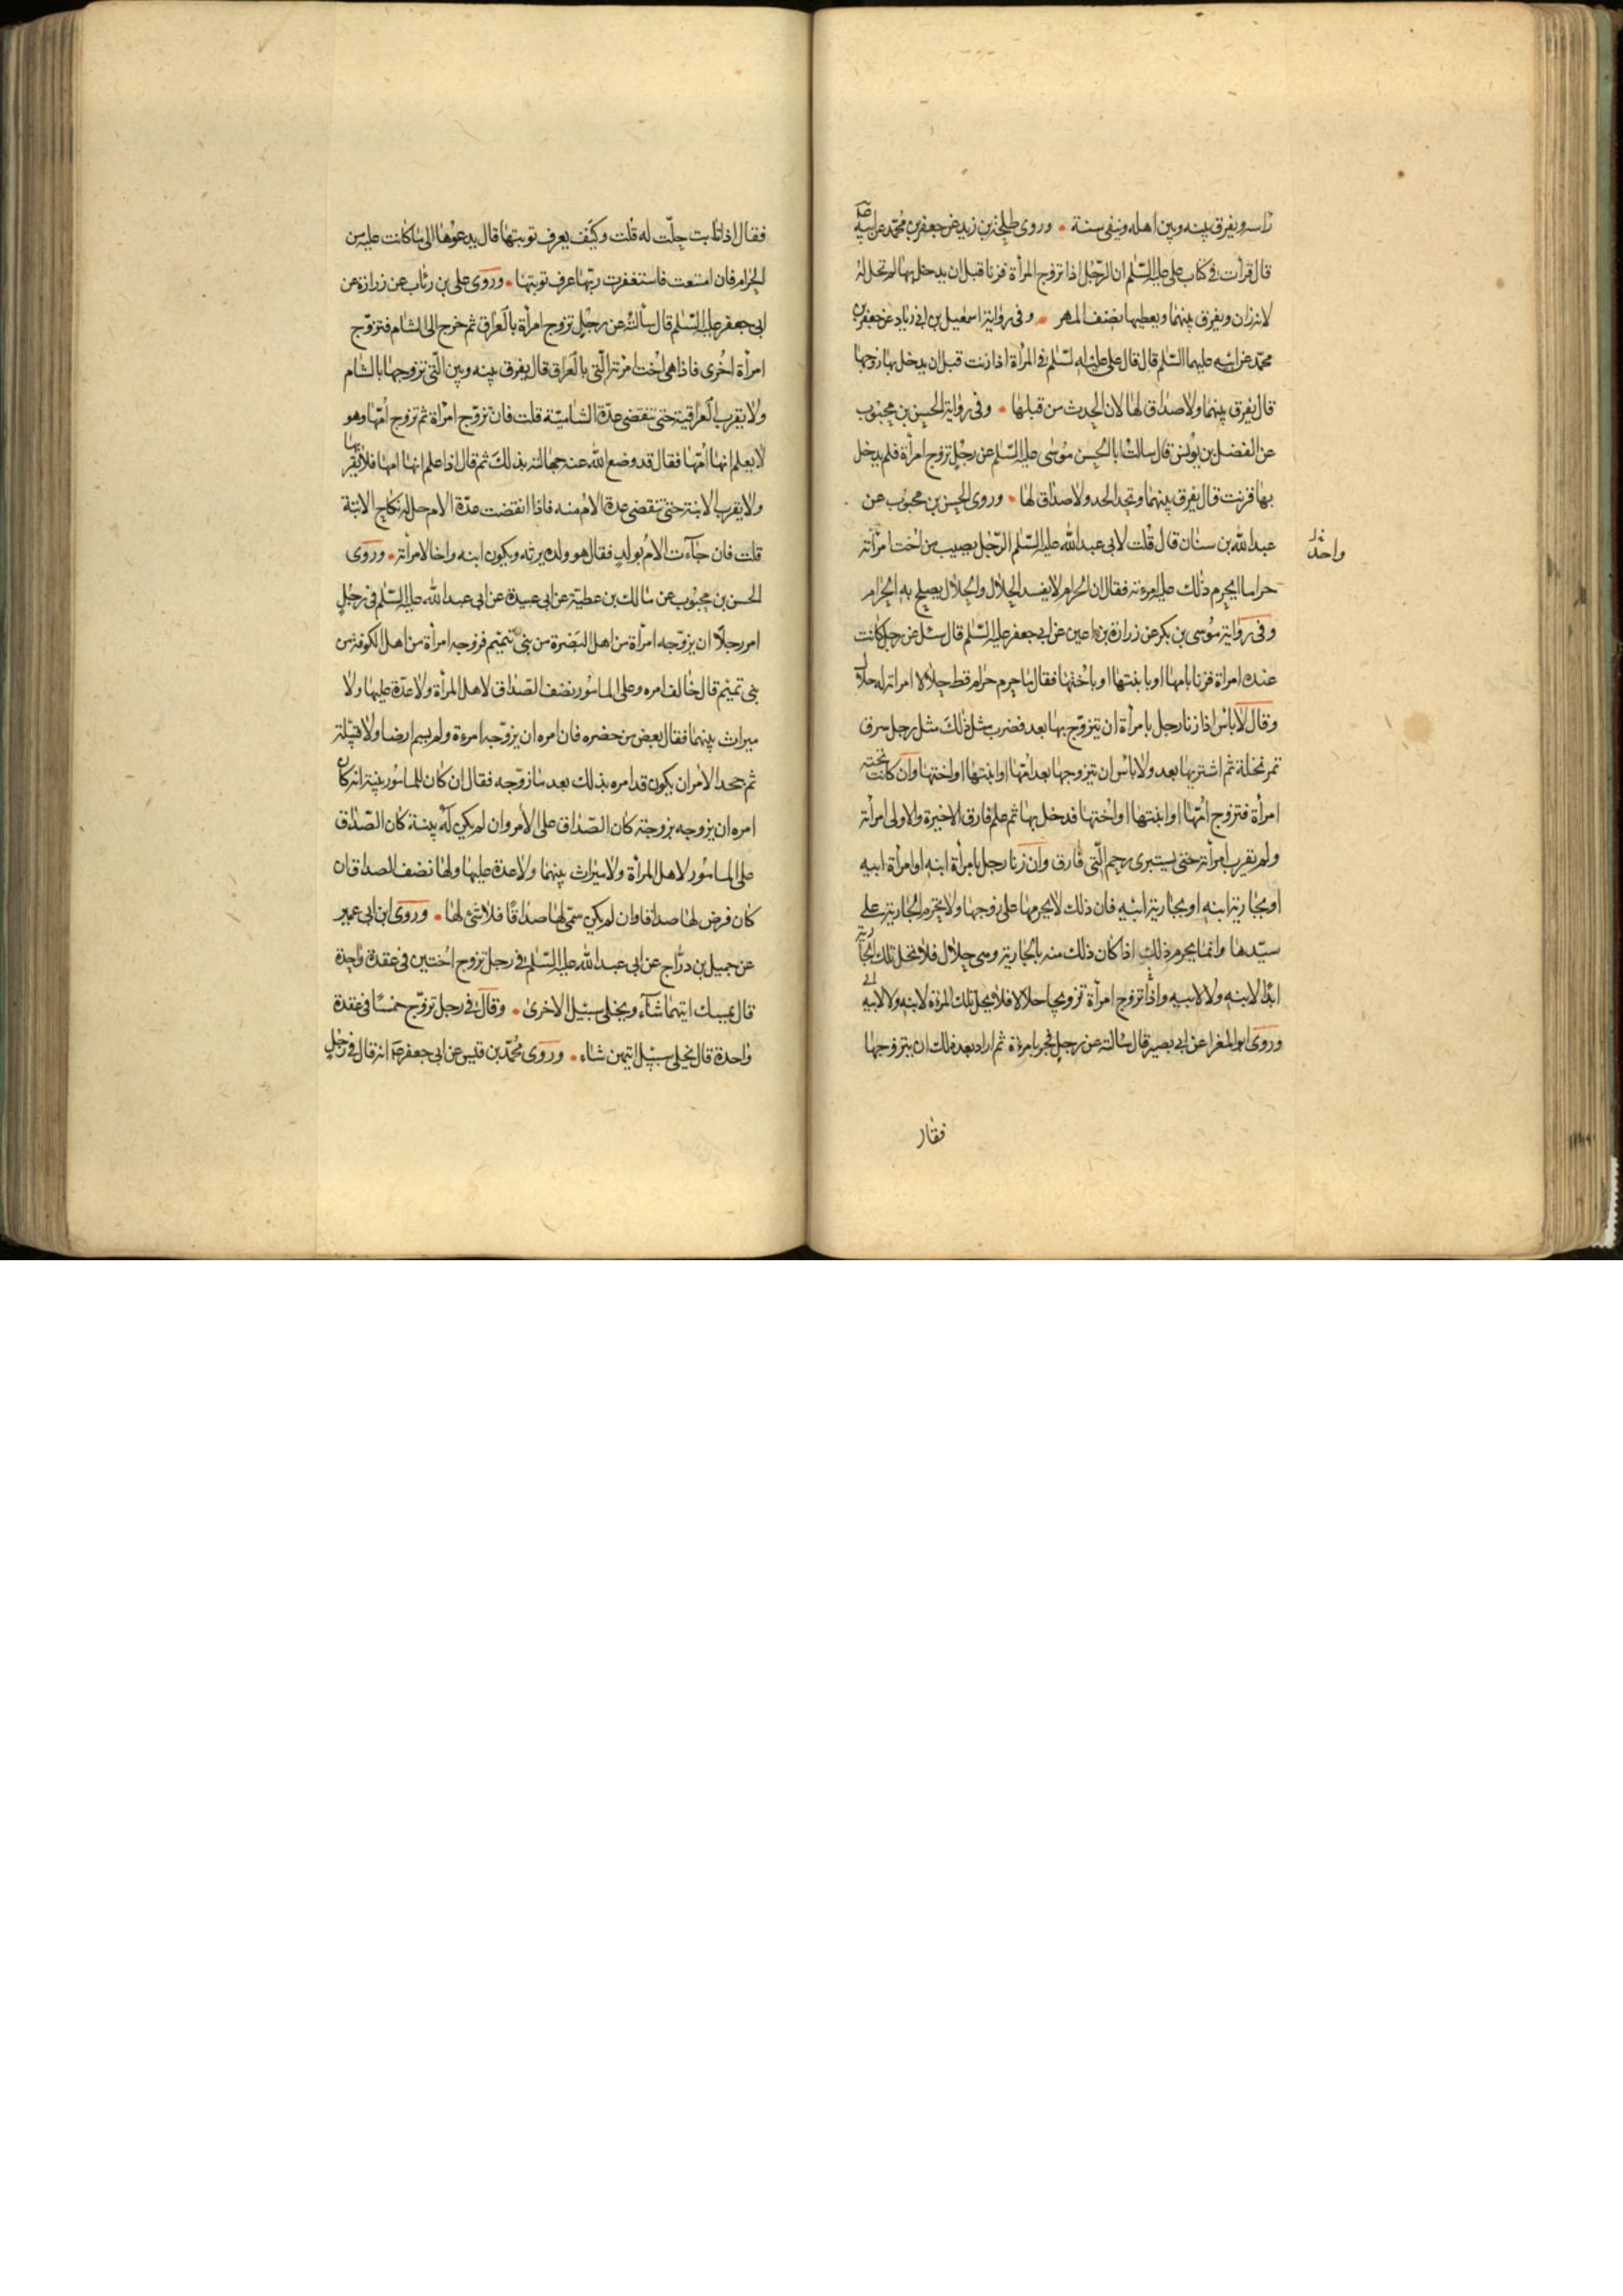 راسه ويفرق بينه وبين اهله وينفى سنة وروى طلحة بن زيد عن جعفر بن محمد عن ابيه
قال قرأت فى كتاب على عليه السلم ان الرجل اذا تزوج المرأة فزنا قبل ان يدخل بها لم تحل له
لانه زان ويفرق بينهما ويعطيها نصف المهر وفى رواية اسمعيل بن ابى زياد عن جعفر بن
محمد عن ابيه عليهما السلم قال قال على عليه السلم فى المرأة اذا زنت قبل ان يدخل بها زوجها
قال يفرق بينهما ولا صداق لها لان الحدث من قبلها وفى رواية الحسن بن محبوب
عن الفضل بن يونس قال سالت ابا الحسن موسى عليه السلم عن رجل تزوج امرأة فلم يدخل
بها فزنت قال يفرق بينهما وتحد الحد ولا صداق لها وروى الحسن بن محبوب عن
عبد الله بن سنان قال قلت لابى عبد الله عليه السلم الرجل يصيب من اخت امرأته
واحد
حراما ايحرم ذلك عليه امرءته فقال ان الحرام لا يفسد الحلال والحلال يصلح به الحرام
وفى رواية موسى بن بكر عن زرارة بن اعين عن ابى جعفر عليه السلم قال سئل عن رجل كانت
عنده امراة فزنا بامها او بابنتها او باختها فقال ما حرم حرام قط حلالا امراته له حلال
وقال لا باس اذا زنا رجل بامرأة ان يتزوج بها بعد فضرب مثل ذلك مثل رجل سرق
تمر نخلة ثم اشتريها بعد ولا باس ان يتزوجها بعد امها او ابنتها او اختها وان كانت تحته
امرأة فتزوج امها او ابنتها او اختها فدخل بها ثم علم فارق الاخيرة والاولى امرأته
ولم يقرب امرأته حتى يستبرى رحم التى فارق وان زنا رجل بامرأة ابنه او امرأة ابيه
او بجارية ابنه او بجارية ابيه فان ذلك لا يحرمها على زوجها ولا يحرم الجارية على
سيدها وانما يحرم ذلك اذا كان ذلك منه بالجارية وهى حلال فلا تحل تلك الجارية
ابدا لابنه ولا لابيه واذا تزوج امرأة تزويجا حلالا فلا يحل تلك المرءة لابنه ولا لابيه
وروى ابو المغرا عن ابى بصير قال سالته عن رجل فجر بامرءة ثم اراد بعد ذلك ان يتزوجها
فقال
فقال اذا تابت حلت له قلت وكيف يعرف توبتها قال يدعوها الى ما كانت عليه من
الحرام فان امتنعت فاستغفرت ربها عرف توبتها وروى على بن رئاب عن زرارة عن
ابى جعفر عليه السلم قال سألته عن رجل تزوج امرأة بالعراق ثم خرج الى الشام فتزوج
امرأة اخرى فاذا هى اخت امرته التى بالعراق قال يفرق بينه وبين التى تزوجها بالشام
ولا يقرب العراقية حتى تنقضى عدة الشامية قلت فان تزوج امرأة ثم تزوج امها وهو
لا يعلم انها امها فقال قد وضع الله عنه جهالته بذلك ثم قال اذا علم انها امها فلا يقربها
ولا يقرب الابنة حتى تنقضى عدة الام منه فاذا انقضت عدة الام حل له نكاح الابنة
قلت فان جاءت الام بولد فقال هو ولده يرثه ويكون ابنه واخا لامرأته وروى
الحسن بن محبوب عن مالك بن عطية عن ابى عبيدة عن ابى عبد الله عليه السلم فى رجل
امر رجلا ان يزوجه امرأة من اهل البصرة من بنى تميم فزوجه امرأة من اهل الكوفة من
بنى تميم قال خالف امره وعلى المامور نصف الصداق لاهل المرأة ولا عدة عليها ولا
ميراث بينهما فقال بعض من حضره فان امره ان يزوجه امرءة ولم يسم ارضا ولا قبيلة
ثم جحد الامر ان يكون قد امره بذلك بعد ما زوجه فقال ان كان للمامور بينة انه كان
امره ان يزوجه بزوجته كان الصداق على الامر وان لم يكن له بينة كان الصداق
على المامور لاهل المرأة ولا ميراث بينهما ولا عدة عليها ولها نصف الصداق ان
كان فرض لها صداقا وان لم يكن سمى لها صداقا فلا شئ لها وروى ابن ابى عمير
عن جميل بن دراج عن ابى عبد الله عليه السلم فى رجل تزوج اختين فى عقدة واحدة
قال يمسك ايتهما شآء ويخلى سبيل الاخرى وقال فى رجل تزوج خمسا فى عقدة
واحدة قال يخلى سبيل ايتهن شاء وروى محمد بن قيس عن ابى جعفر انه قال فى رجل